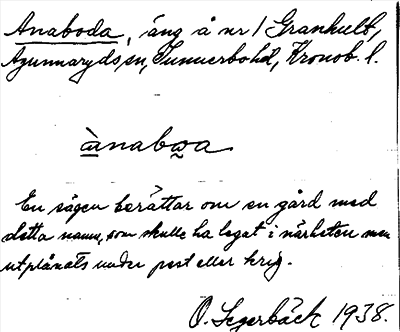 Anaboda, äng å nr 1 Granhult,
Agunnaryds sn, Sunnerbo hd, Kronob. l.
ànabo̰a
En sägen berättar om en gård med
detta namn, som skulle ha legat i närheten men
utplånats under pest eller krig.
O. Segerbäck 1938.